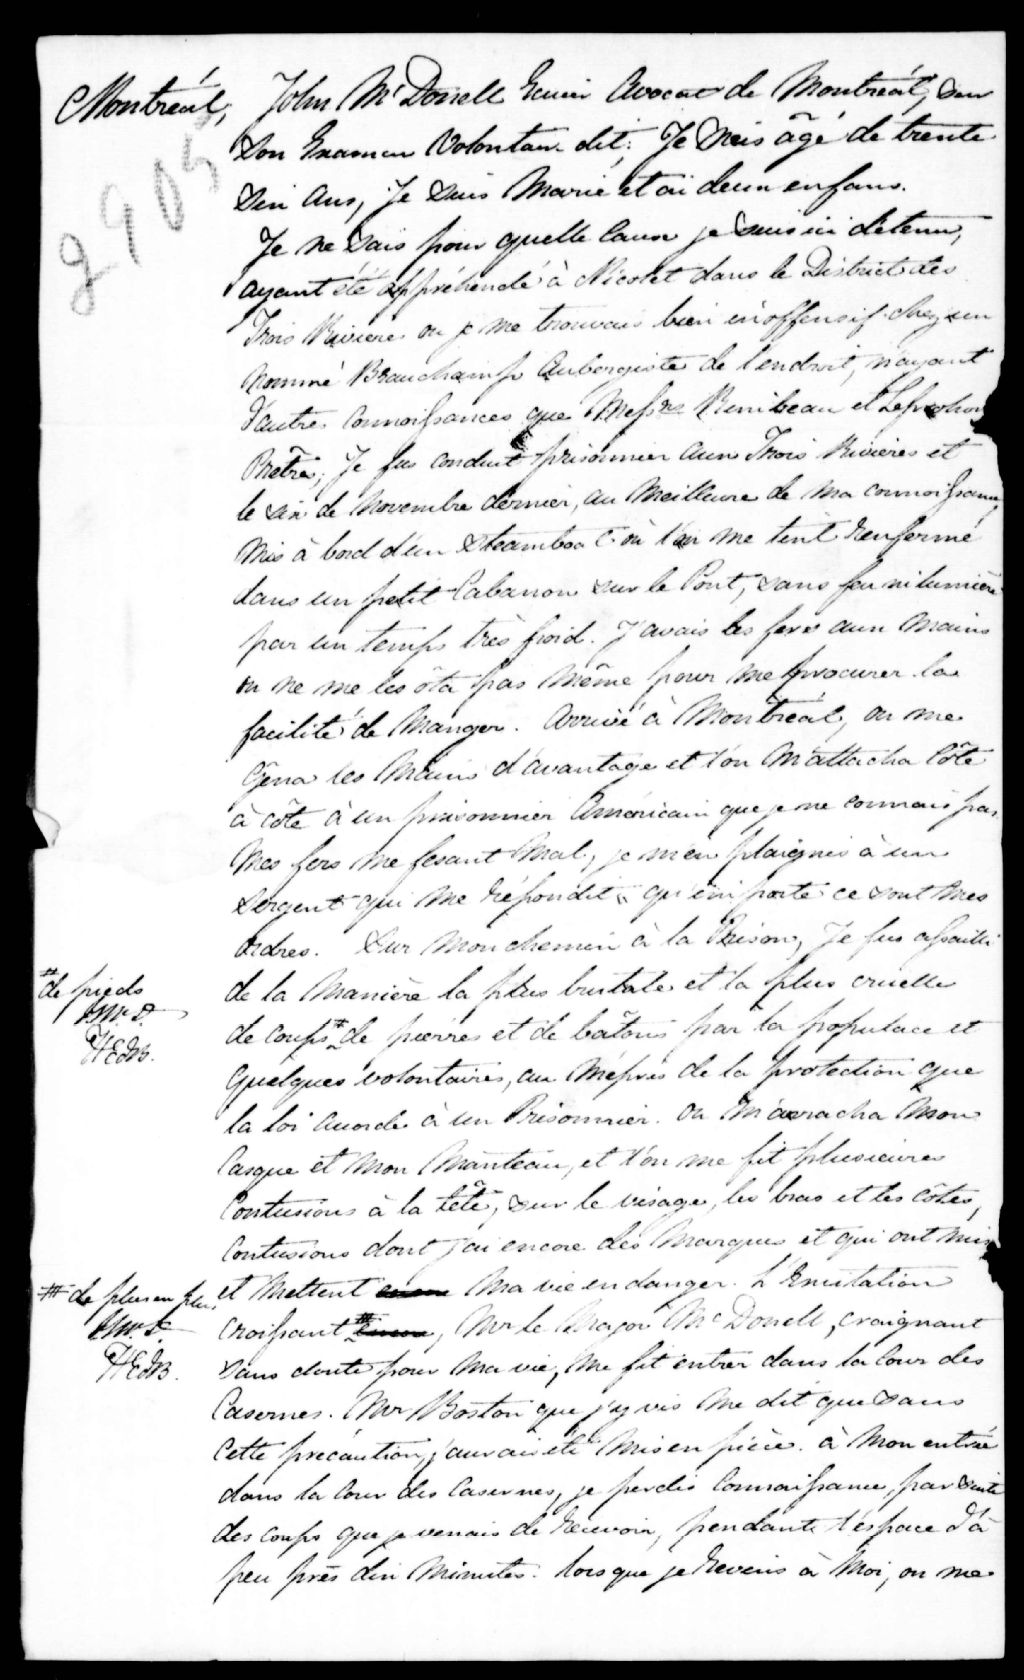 Montréal, John McDonell Ecuier Avocat de Montréal, dans
son Examen Volontaire dit; Je suis âgé de trente
six ans, je suis Marié et ai deux enfans.
2905
Je ne sais pour quelle cause je suis ici détenu,
ayant été appréhendé à Nicolet dans le District des
Trois Rivieres ou je me trouvais bien inoffensif chez un
nommé Beauchamp Aubergiste de l'endroit, n'ayant
d'autres connoissances que Messrs Kimbeau et
Prêtre; Je fus conduit prisonnier aux Trois Rivieres et
le six de Novembre dernier, au Meilleure de Ma connoissance,
Mis à bord d'un Steamboat où l'on me tint renfermé
dans un petit Cabanon sur le Pont, sans feu ni lumière
par un temps très froid. J'avais les fers aux Mains
on ne me les ôta pas Même pour me procurer la
facilité de Manger. Arrivé à Montréal, on me
Gêna les Mains d'avantage et l'on M'attacha Côte
à côte à un prisonnier Américain que je ne connais pas.
Mes fers me fesant Mal, je m'en plaignis à un
Sergent qui me répondit " qu'importe ce sont Mes
ordres. Sur Mon chemin à la Prison, Je fus assailli
# de pieds
JMcD.
PHEdB.
de la Manière la plus brutale et la plus cruelle
de coups # de pierres et de bâtons par la populace et
Quelques volontaires, au Mépris de la protection que
la loi accorde à un Prisonnier. On M'arracha Mon
Casque et Mon Manteau, et l'on me fit plusieures
Contusions à la tête, sur le visage, les bras et les côtes,
Contusions dont j'ai encore des Marques et qui ont mis
## de plus en plus
JMcD.
PHEdB.
et Mettent encore Ma vie en danger. L'Excitation
Croissant ## encore, Mr le Major McDonell, craignant
sans doute pour Ma vie, Me fit entrer dans la Cour des
Casernes. Mr Boston que j'y vis Me dit que sans
Cette précaution, j'aurais été Mis en pièce. à Mon entrée
dans la Cour des Casernes, je perdis Connaissance, par suite
des coups que je venais de recevoir, pendant l'espace d'à
peu près dix Minutes. Lorsque je revins à Moi, on me